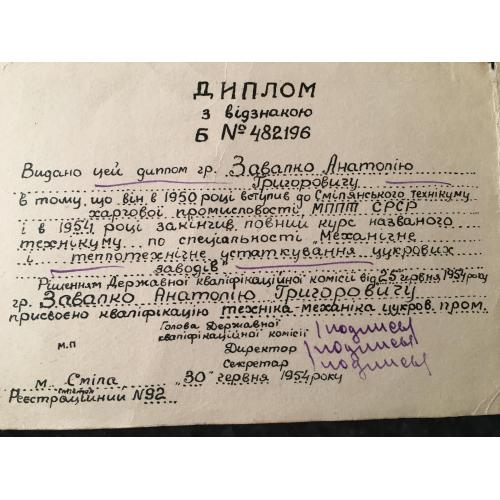 ДИПЛОМ
з відзнакою
Б № 482196
Видано цей диплом гр. Завалко Анатолію
Григоровичу
в тому, що він в 1950 році вступив до Смілянського технікуму
харчової промисловості МППТ СРСР
і в 1954 році закінчив повний курс названого
технікуму по спеціальності „Механічне
і теплотехнічне устаткування цукрових
заводів"
Рішенням Державної кваліфікаційної комісії від 25 червня 1954 року
гр. Завалко Анатолію Григоровичу
присвоєно кваліфікацію техніка-механіка цукров. пром.
Голова Державної
кваліфікаційної комісії /подпись/
М.П Директор /подпись/
Секретар /подпись/
м. Сміла „30" червня 1954 року
Реєстраційний N92